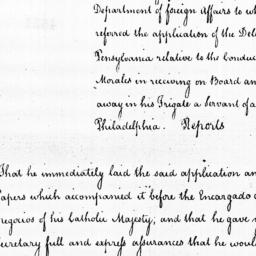 Department of foreign Affairs to wh
referred the application of the Dele
Pensylvania relative to the Conduc
Morales in receiving on Board an
away in his Frigate a Servant of a
Philadelphia. Reports
That he immediately laid the said application an
Papers which accompanied it before the Encargado d
negocios of his Catholic Majesty; and that he gave y
Secretary full and express assurances that he would